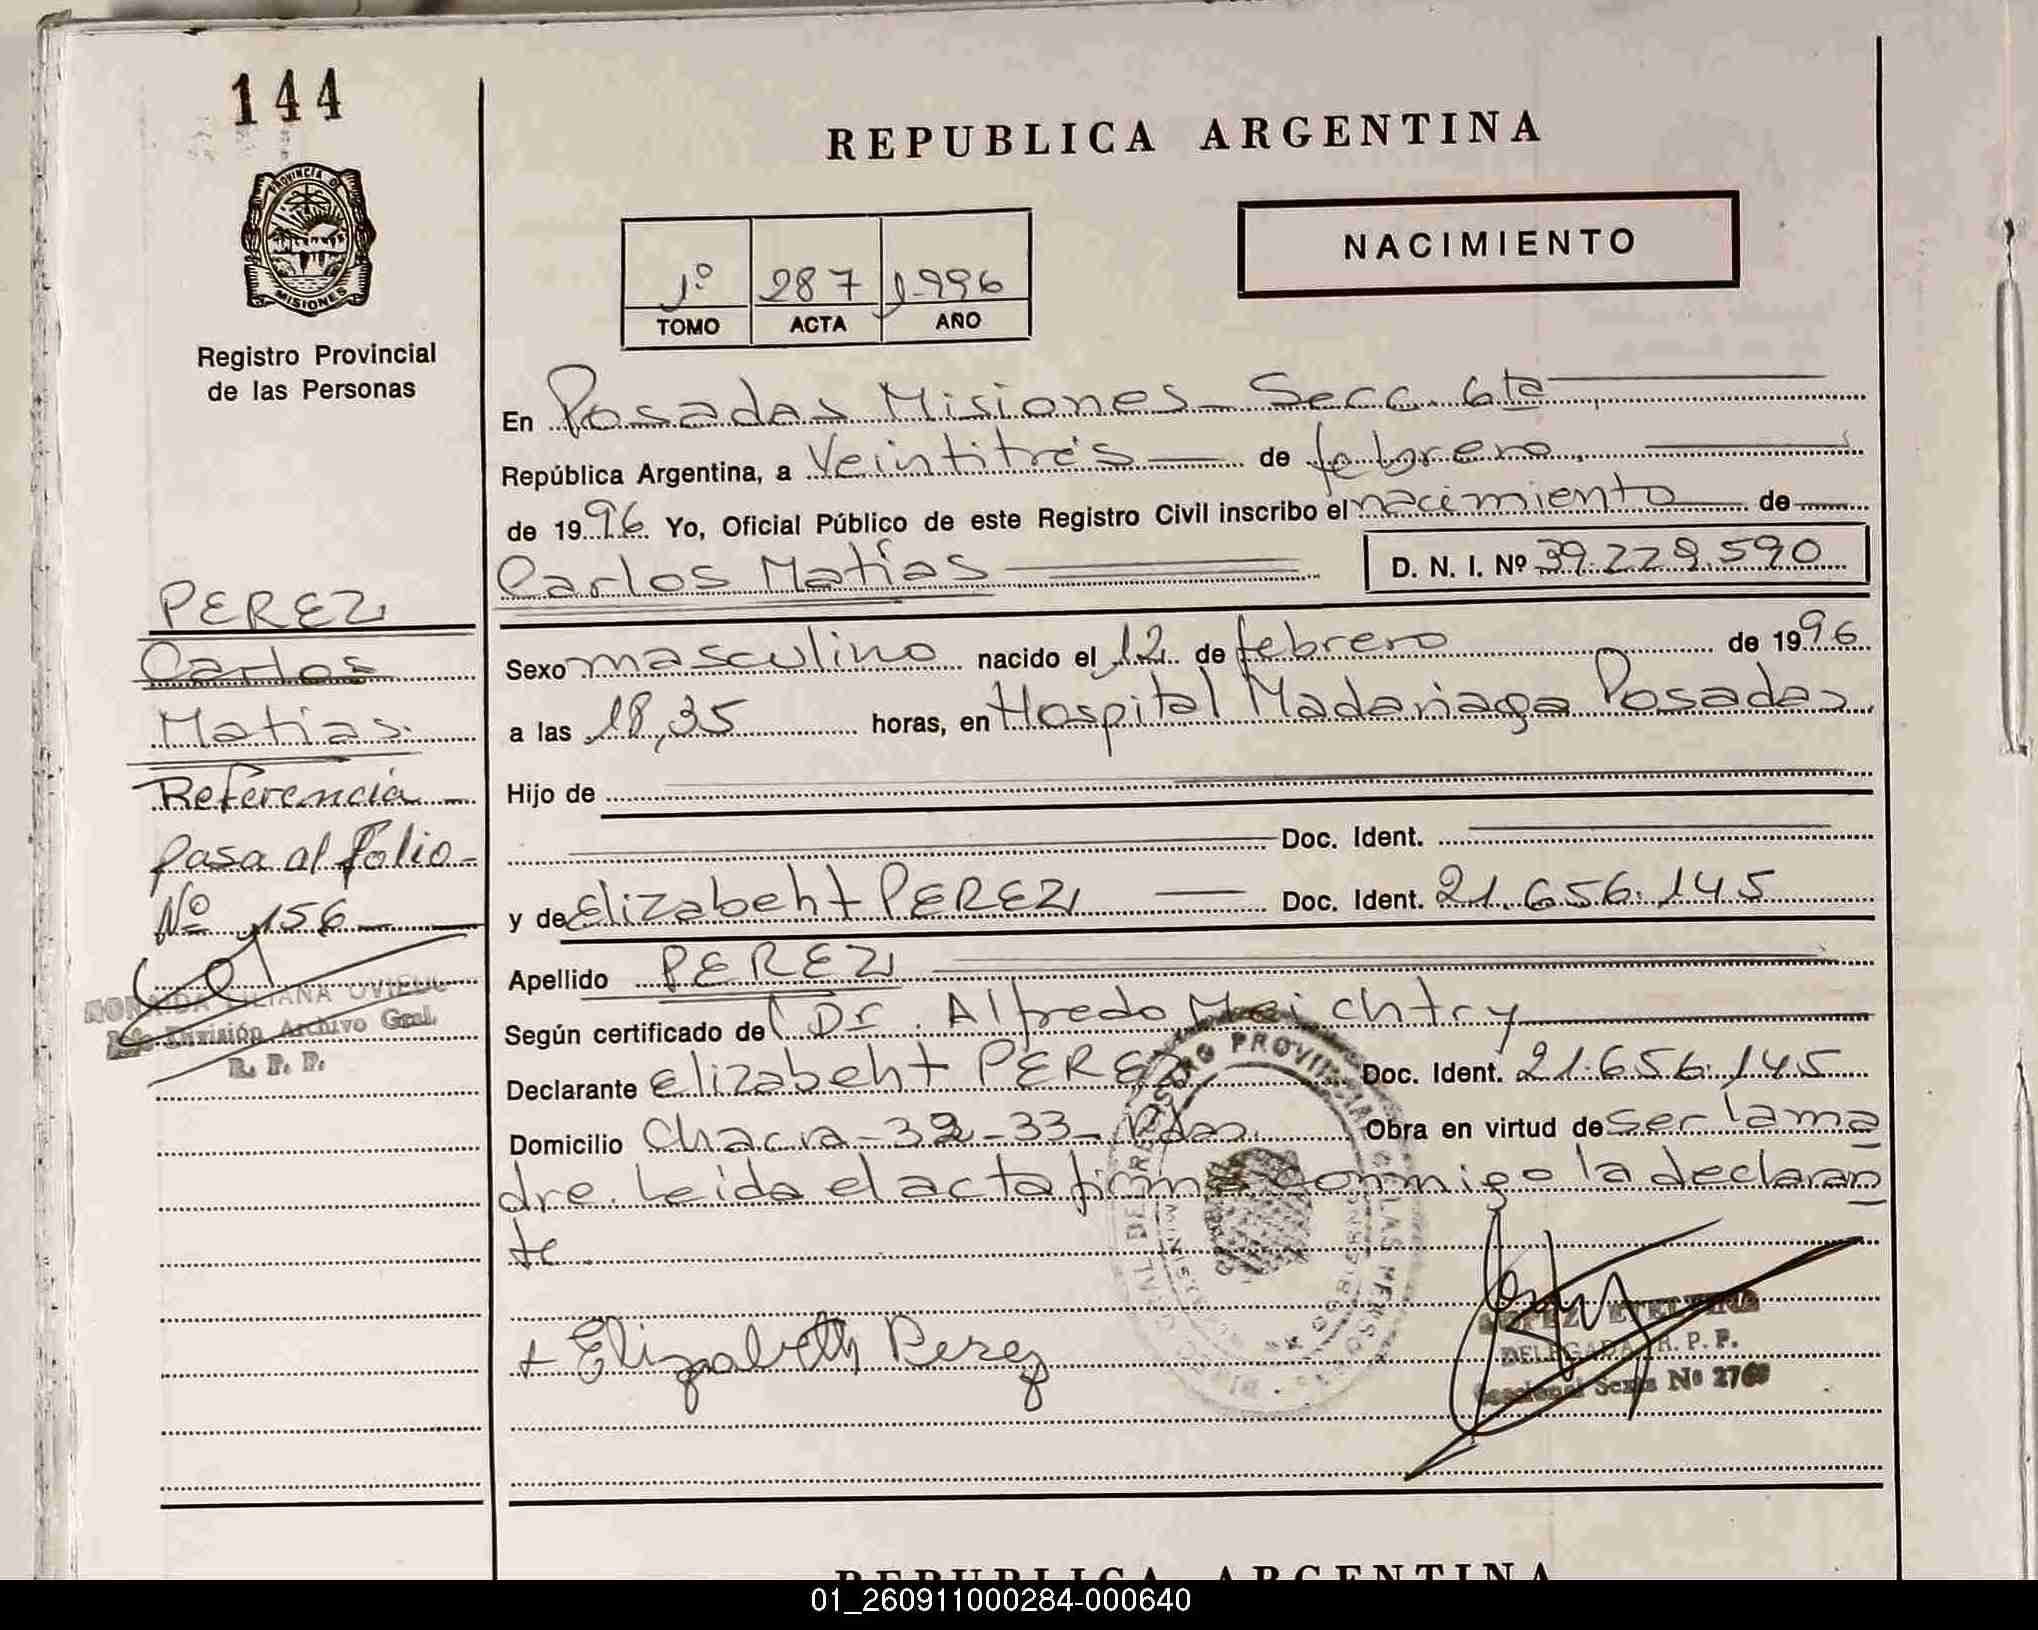 144
PROVINCIA DE
MISIONES
Registro Provincial
de las Personas
REPUBLICA ARGENTINA
NACIMIENTO
1º 287 1996
TOMO ACTA AÑO
En Posadas Misiones - Secc. 6ta
República Argentina, a Veintitrés de febrero
de 1996 Yo, Oficial Público de este Registro Civil inscribo el nacimiento de
Carlos Matías D. N. I. Nº 39.229.590
PEREZ
Carlos
Matias
Referencia
pasa al folio
Nº 156
LILIANA OVIEDO
División Archivo Gral.
R. P. P.
Sexo masculino nacido el 12 de febrero de 1996
a las 18,35 horas, en Hospital Madariaga Posadas
Hijo de
Doc. Ident.
y de Elizabeht PEREZ Doc. Ident. 21.656.145
Apellido PEREZ
Según certificado de Dr. Alfredo Meichtry
Declarante Elizabeht PEREZ Doc. Ident. 21.656.145
Domicilio Chacra - 32 - 33 - Pdas. Obra en virtud de ser la ma
dre. Leida el acta firma conmigo la declaran
te
+ Elizabeth Perez
LOPEZ ETELVINA
DELEGADA R. P. P.
Seccional Sexta Nº 2760
REPUBLICA ARGENTINA
01_260911000284-000640